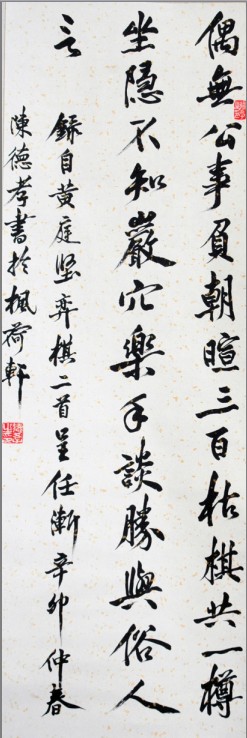 偶無公事負朝暄三百枯棋共一樽
坐隱不知巖穴樂手談勝與俗人
言 錄自黃庭堅弈棋二首呈任漸辛卯仲春
陳德孝書於楓荷軒